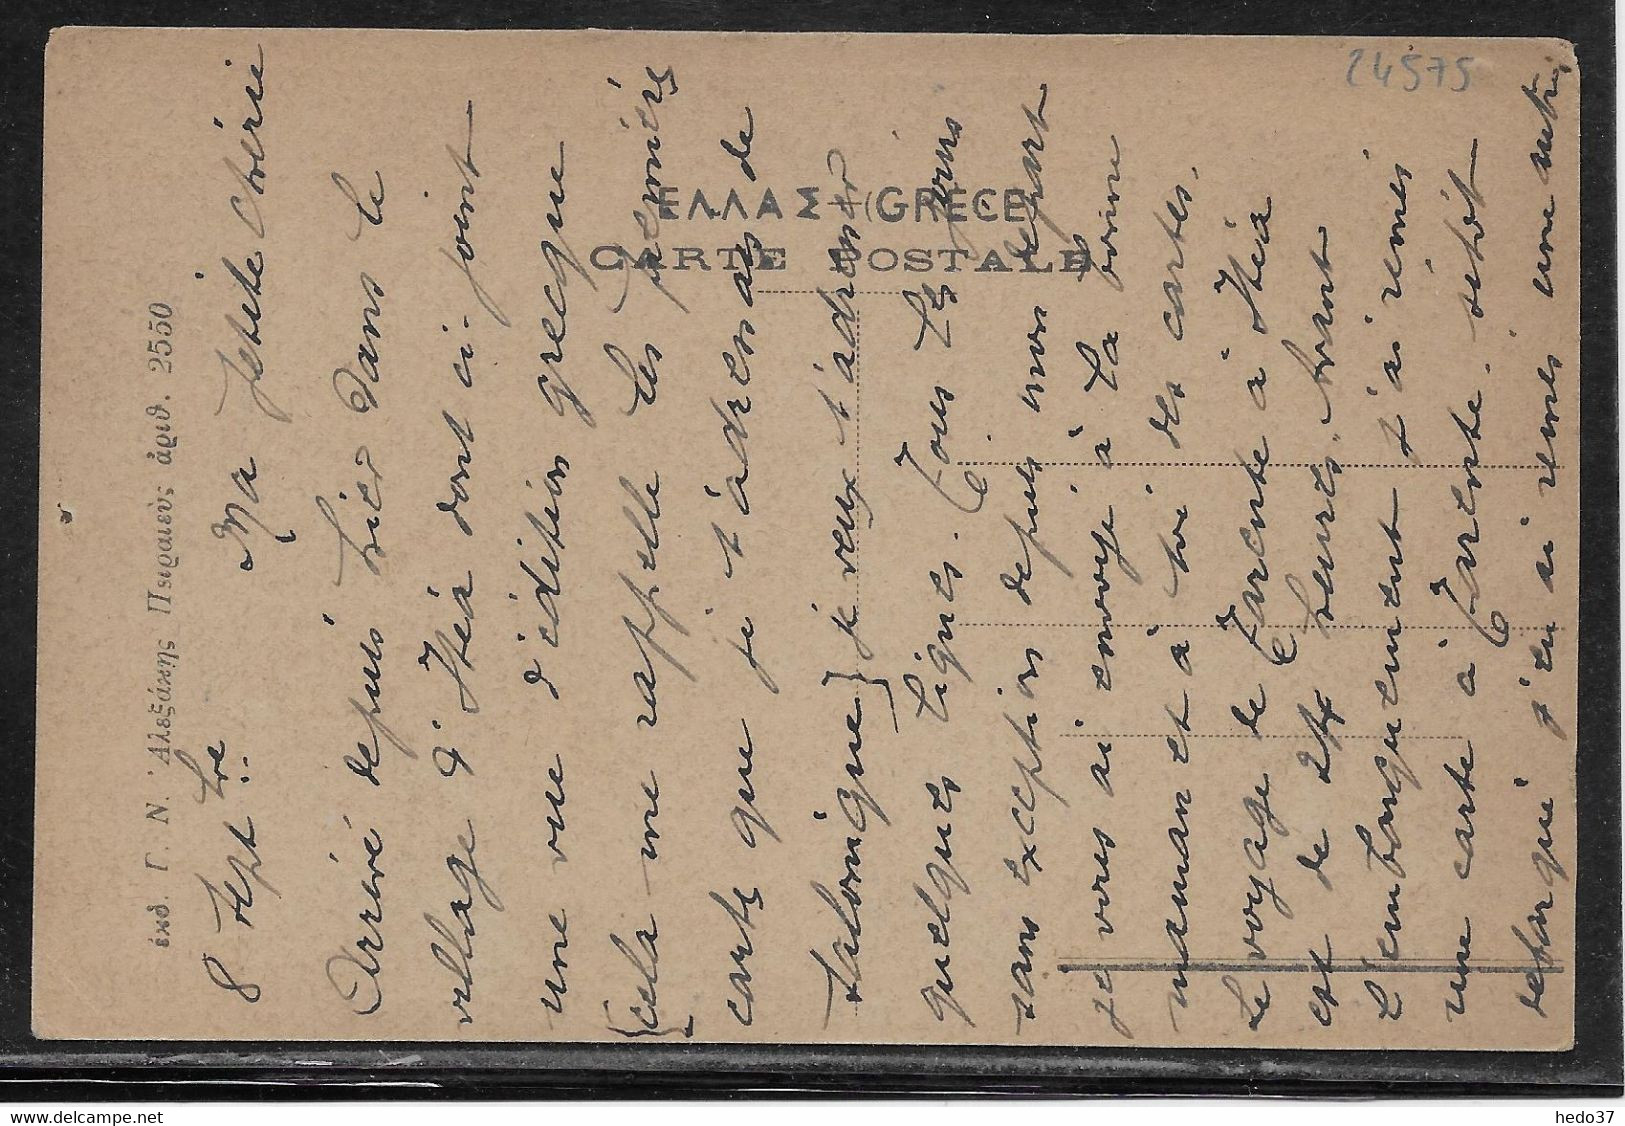 24575
ΕΛΛΑΣ - (GRÈCE)
CARTE POSTALE
ἐκδ. Γ. Ν. Ἀλεξάκης Πειραιεὺς ἀριθ. 2550
8 Sept bre Ma petite chérie
Arrivé depuis hier dans le
village d'Itéa dont ci-joint
une vue d'édition grecque
(cela me rappelle les premières
cartes que je t'adressais de
Salonique) je veux t'adresser
quelques lignes. Tous les jours
sans exception depuis mon départ
je vous ai envoyé à la bonne
maman et à toi des cartes.
Le voyage de Tarente à Itéa
est de 24 heures. Avant
l'embarquement j'ai remis
une carte à Tarente. sitôt
débarqué j'en ai remis une autre
delcampe.net
hedo37